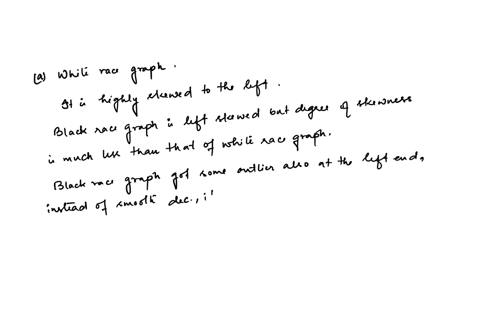 (a) White race graph.
It is highly skewed to the left.
Black race graph is left skewed but degree of skewness
is much less than that of white race graph.
Black race graph got some outlier also at the left end,
instead of smooth dec., i'